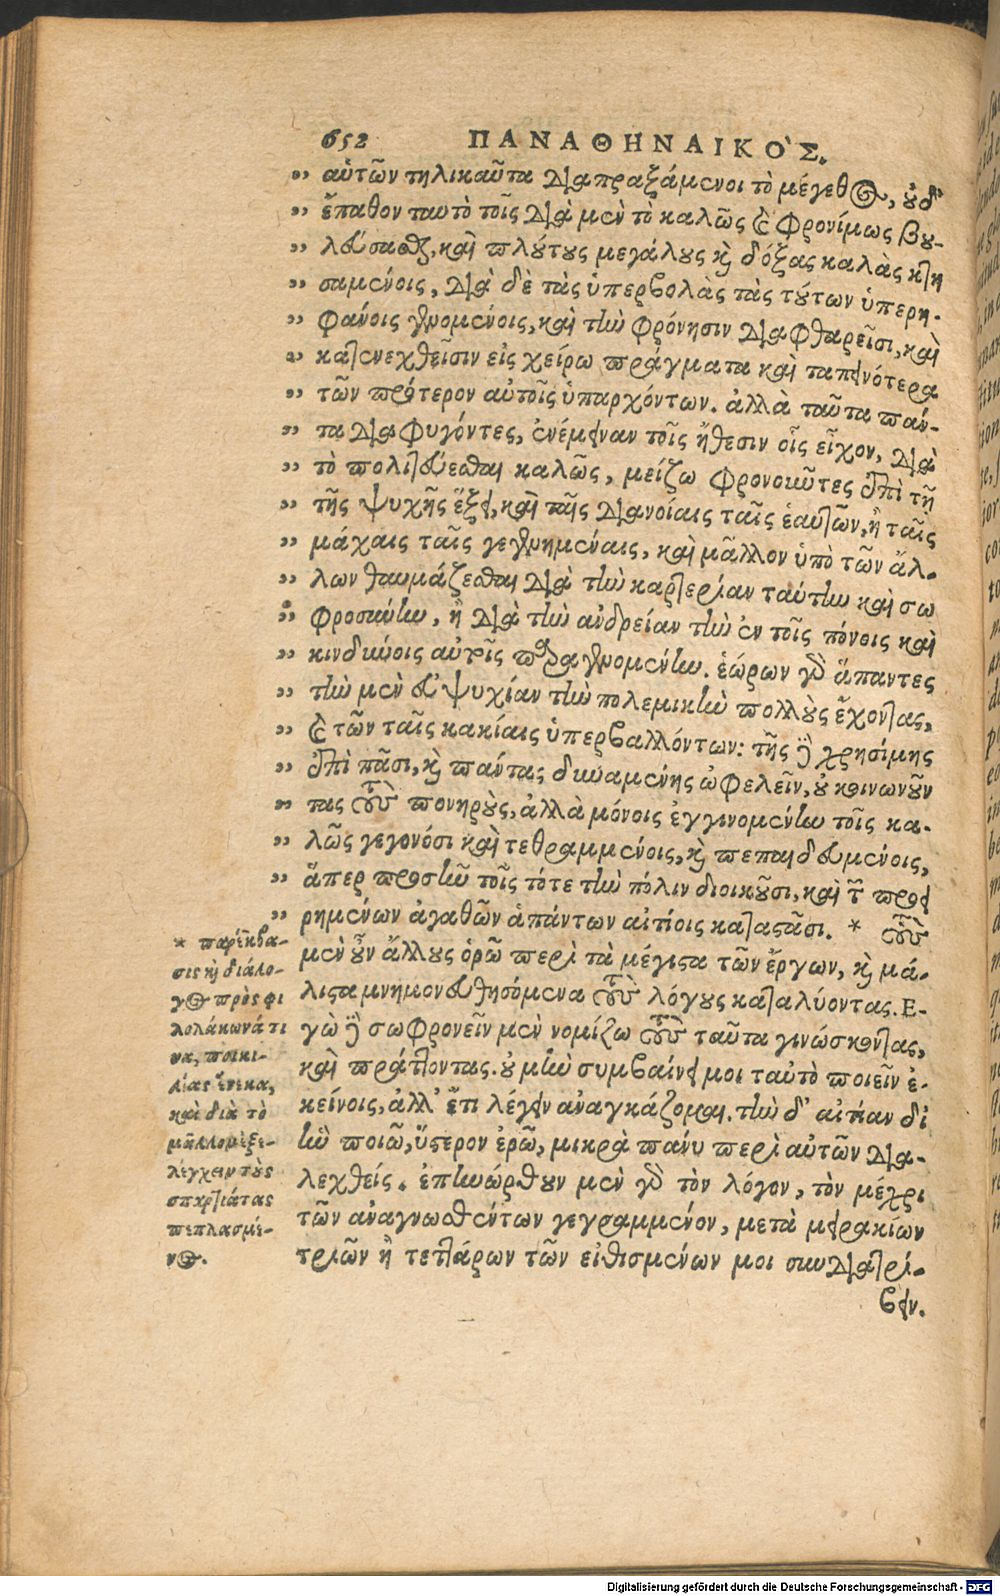 652 ΠΑΝΑΘΗΝΑΙΚΟ`Σ.
" αὐτῶν τηλικαῦτα διαπραξάμενοι τὸ μέγεθος, οὐδ'
" ἔπαθον ταυτὸ τοῖς διὰ μὲν τὸ καλῶς καὶ φρονίμως βου-
" λεύσασθαι, καὶ πλούτους μεγάλους καὶ δόξας καλὰς κτη
" σαμένοις, διὰ δὲ τὰς ὑπερβολὰς τὰς τούτων ὑπερη-
" φάνοις γενομένοις, καὶ τὴν φρόνησιν διαφθαρεῖσι, καὶ
" κατενεχθεῖσιν εἰς χείρω πράγματα καὶ ταπεινότερα
" τῶν πρότερον αὐτοῖς ὑπαρχόντων. ἀλλὰ ταῦτα πάν-
" τα διαφυγόντες, ἐνέμειναν τοῖς ἤθεσιν οἷς εἶχον, διὰ
" τὸ πολιτεύεσθαι καλῶς, μείζω φρονοῦντες ἐπὶ τῇ
" τῆς ψυχῆς ἕξει, καὶ ταῖς διανοίαις ταῖς ἑαυτῶν, ἢ ταῖς
" μάχαις ταῖς γεγενημέναις, καὶ μᾶλλον ὑπὸ τῶν ἄλ-
" λων θαυμάζεσθαι διὰ τὴν καρτερίαν ταύτην καὶ σω
" φροσύνην, ἢ διὰ τὴν ἀνδρείαν τὴν ἐν τοῖς πόνοις καὶ
" κινδύνοις αὐτοῖς παραγενομένην. ἑώρων γὰρ ἅπαντες
" τὴν μὲν εὐψυχίαν τὴν πολεμικὴν πολλοὺς ἔχοντας,
" καὶ τῶν ταῖς κακίαις ὑπερβαλλόντων: τῆς δὲ χρησίμης
" ἐπὶ πᾶσι, καὶ πάντας δυναμένης ὠφελεῖν, οὐ κοινωνοῦν
" τας τοὺς πονηροὺς, ἀλλὰ μόνοις ἐγγινομένην τοῖς κα-
" λῶς γεγονόσι καὶ τεθραμμένοις, καὶ πεπαιδευμένοις,
" ἅπερ προσῆν τοῖς τότε τὴν πόλιν διοικοῦσι, καὶ τῶν προει
" ρημένων ἀγαθῶν ἁπάντων αἰτίοις καταστᾶσι. * τοὺς
μὲν οὖν ἄλλους ὁρῶ περὶ τὰ μέγιστα τῶν ἔργων, καὶ μά-
λιστα μνημονευθησόμενα τοὺς λόγους καταλύοντας. Ε-
γὼ δὲ σωφρονεῖν μὲν νομίζω τοὺς ταῦτα γινώσκοντας,
καὶ πράττοντας. οὐ μὴν συμβαίνει μοι ταὐτὸ ποιεῖν ἐ-
κείνοις, ἀλλ' ἔτι λέγειν ἀναγκάζομαι. τὴν δ' αἰτίαν δι'
ἣν ποιῶ, ὕστερον ἐρῶ, μικρὰ πάνυ περὶ αὐτῶν δια-
λεχθείς. ἐπηνώρθουν μὲν γὰρ τὸν λόγον, τὸν μέχρι
τῶν ἀναγνωσθέντων γεγραμμένον, μετὰ μειρακίων
τριῶν ἢ τεττάρων τῶν εἰθισμένων μοι συνδιατρί-
βειν.
* παρέκβα-
σις καὶ διάλο-
γος πρὸς φι
λολάκωνά τι
να, ποικι-
λίας ἕνεκα,
καὶ διὰ τὸ
μᾶλλον ἐξε-
λέγχειν τοὺς
σπαρτιάτας
πεπλασμέ-
νος.
Digitalisierung gefördert durch die Deutsche Forschungsgemeinschaft - DFG